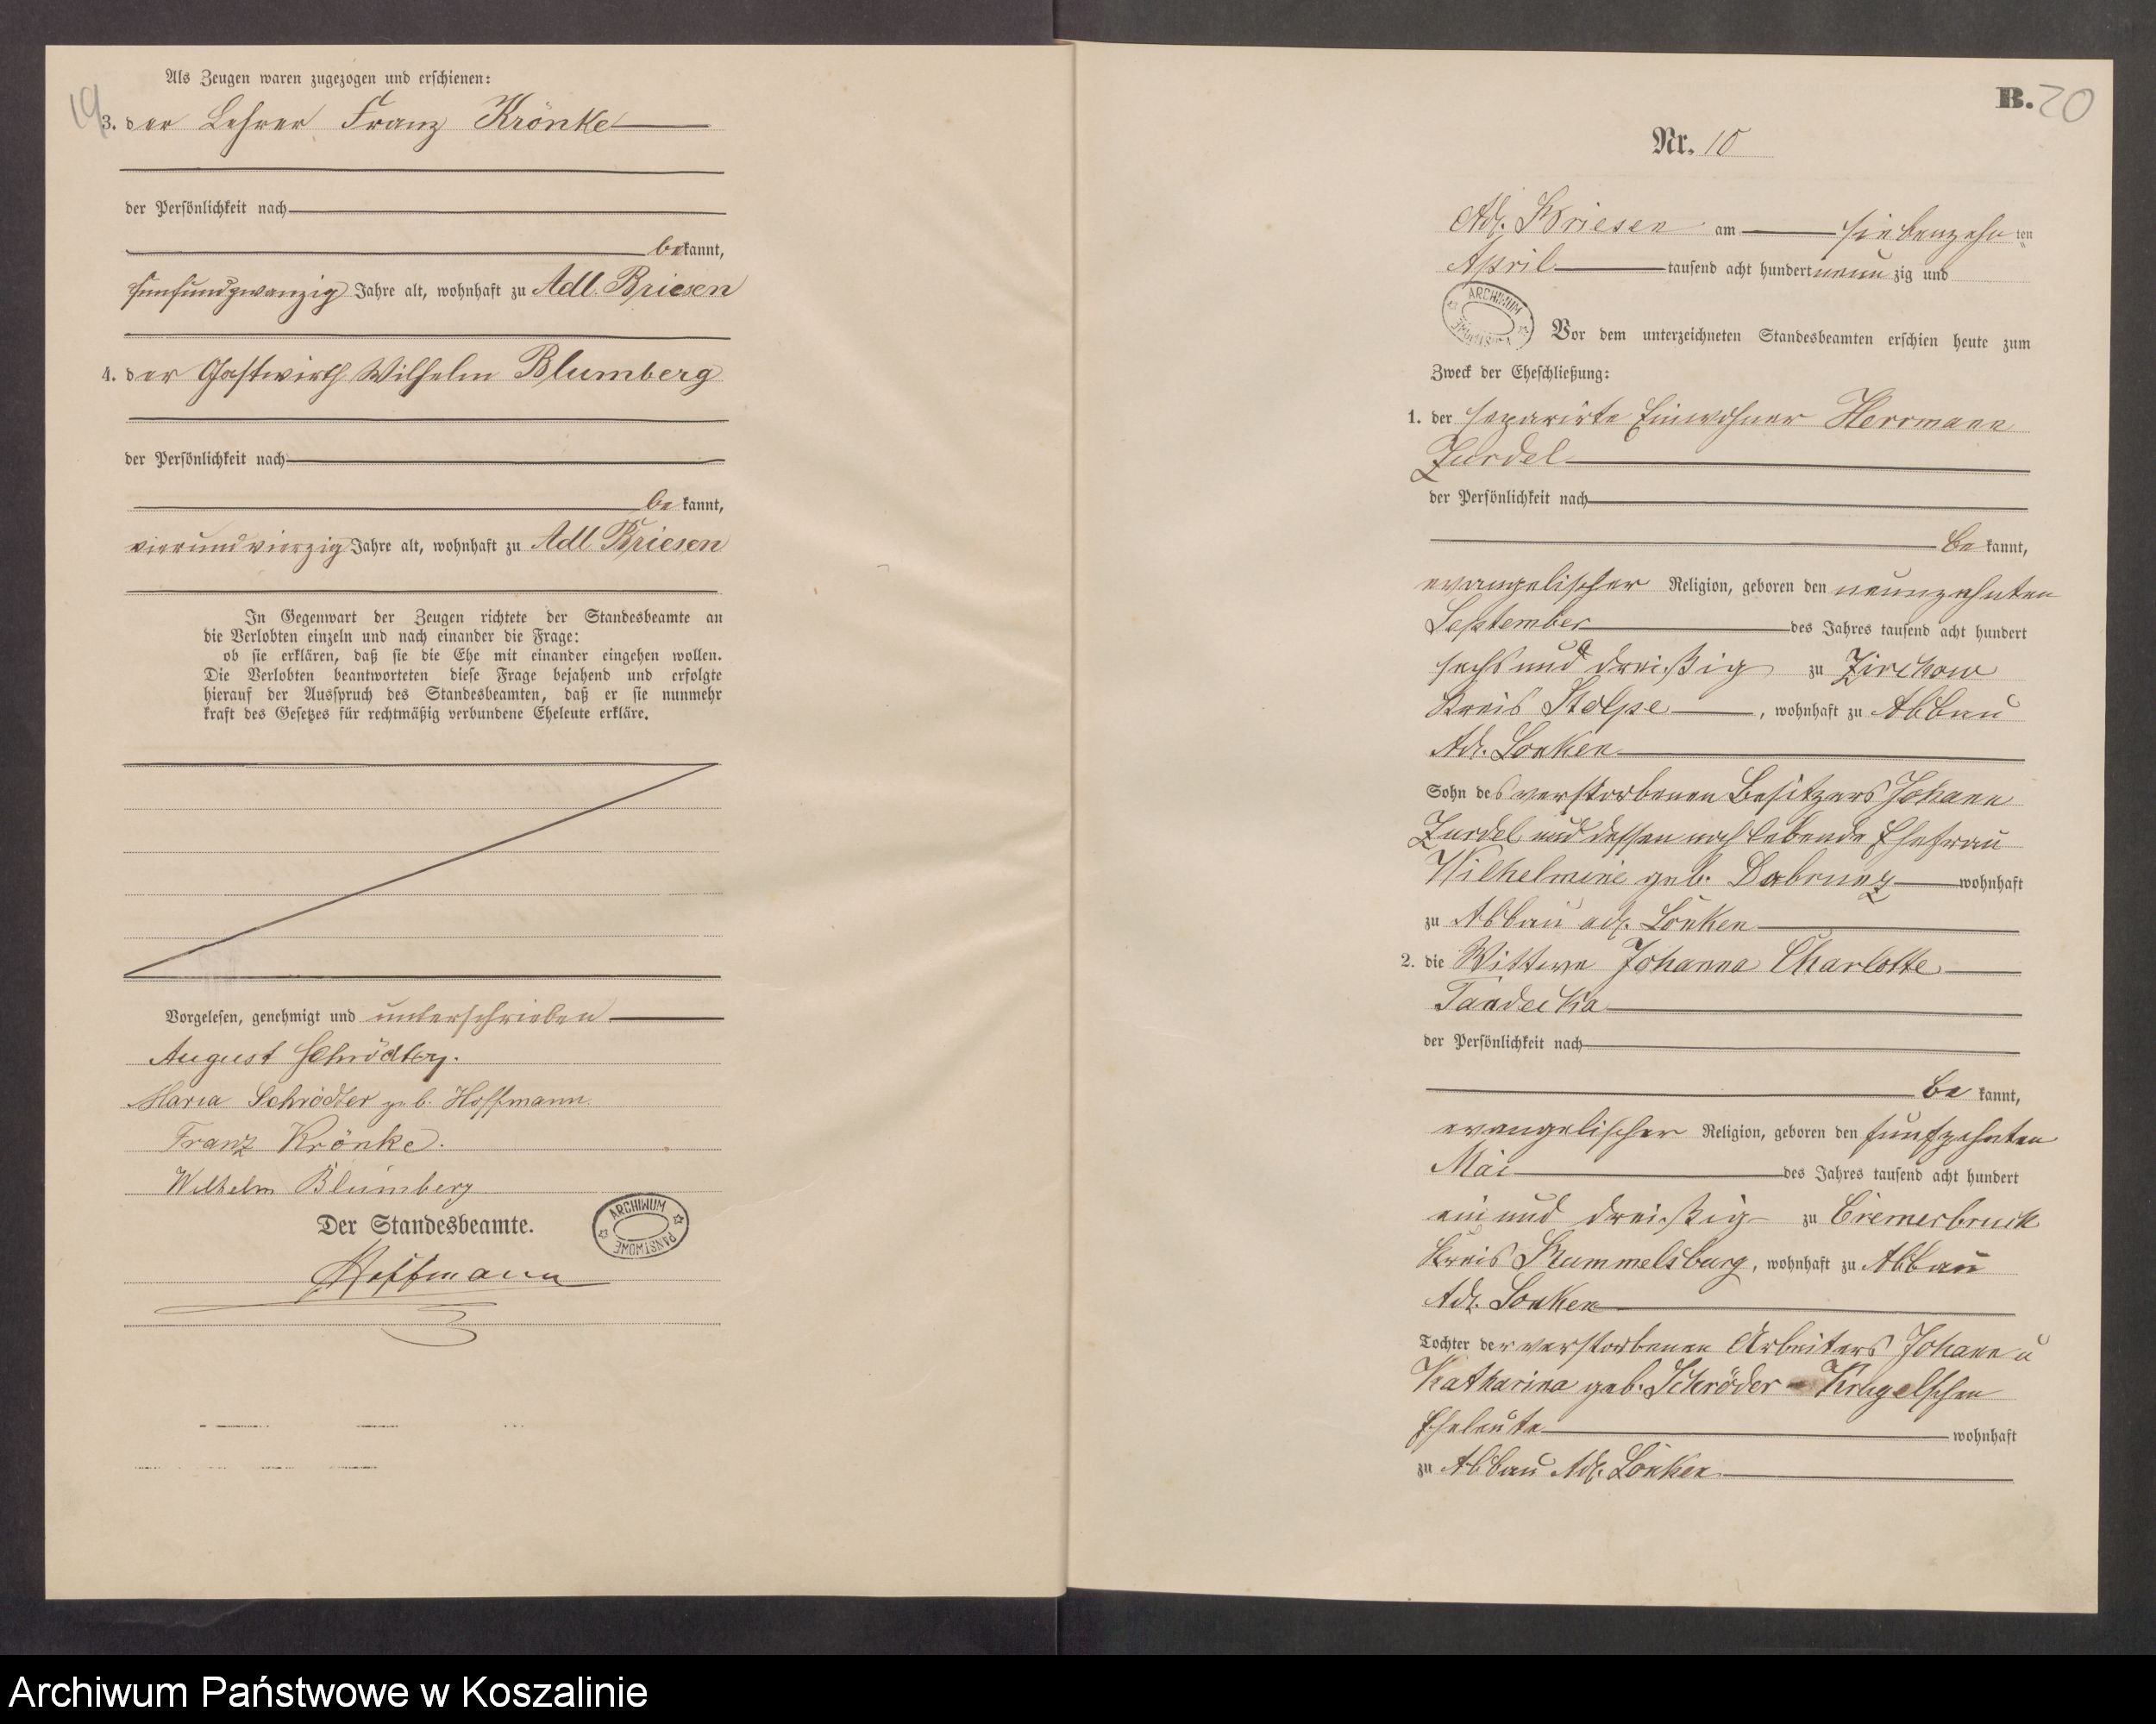 19
Als Zeugen waren zugezogen und erschienen:
3. der Lehrer Franz Krönke
der Persönlichkeit nach
bekannt,
fünfundzwanzig Jahre alt, wohnhaft zu Adl. Briesen
4. der Gastwirth Wilhelm Blumberg
der Persönlichkeit nach
be kannt,
vierundvierzig Jahre alt, wohnhaft zu Adl Briesen
In Gegenwart der Zeugen richtete der Standesbeamte an
die Verlobten einzeln und nach einander die Frage:
ob sie erklären, daß sie die Ehe mit einander eingehen wollen.
Die Verlobten beantworteten diese Frage bejahend und erfolgte
hierauf der Ausspruch des Standesbeamten, daß er sie nunmehr
kraft des Gesetzes für rechtmäßig verbundene Eheleute erkläre.
Vorgelesen, genehmigt und unterschrieben
August Schrödter.
Maria Schrödter geb. Hoffmann.
Franz Krönke.
Wilhelm Blumberg
Der Standesbeamte.
Hoffmann
ARCHIWUM PAŃSTWOWE
B. 20
Nr. 10
Adl. Briesen am siebenzehn ten
April tausend acht hundert neun zig und
ARCHIWUM
Vor dem unterzeichneten Standesbeamten erschien heute zum
Zweck der Eheschließung:
1. der separirte Einwohner Herrmann
Zurdel
der Persönlichkeit nach
be kannt,
evangelischer Religion, geboren den neunzehnten
September des Jahres tausend acht hundert
sechs und dreißig zu Zirchow
Kreis Stolpe, wohnhaft zu Abbau
Adl. Lonken
Sohn des verstorbenen Besitzers Johann
Zurdel und dessen noch lebende Ehefrau
Wilhelmine geb. wohnhaft
zu Abbau adl. Lonken
2. die Wittwe Johanna Charlotte
der Persönlichkeit nach
be kannt,
evangelischer Religion, geboren den fünfzehnten
Mai des Jahres tausend acht hundert
ein und dreißig zu Cremerbruch
Kreis Rummelsburg, wohnhaft zu Abbau
Adl. Lonken
Tochter der verstorbenen Arbeiters Johann u
Katharina geb. Schröder - Krugelschen
Eheleute wohnhaft
zu Abbau Adl. Lonken
Archiwum Państwowe w Koszalinie